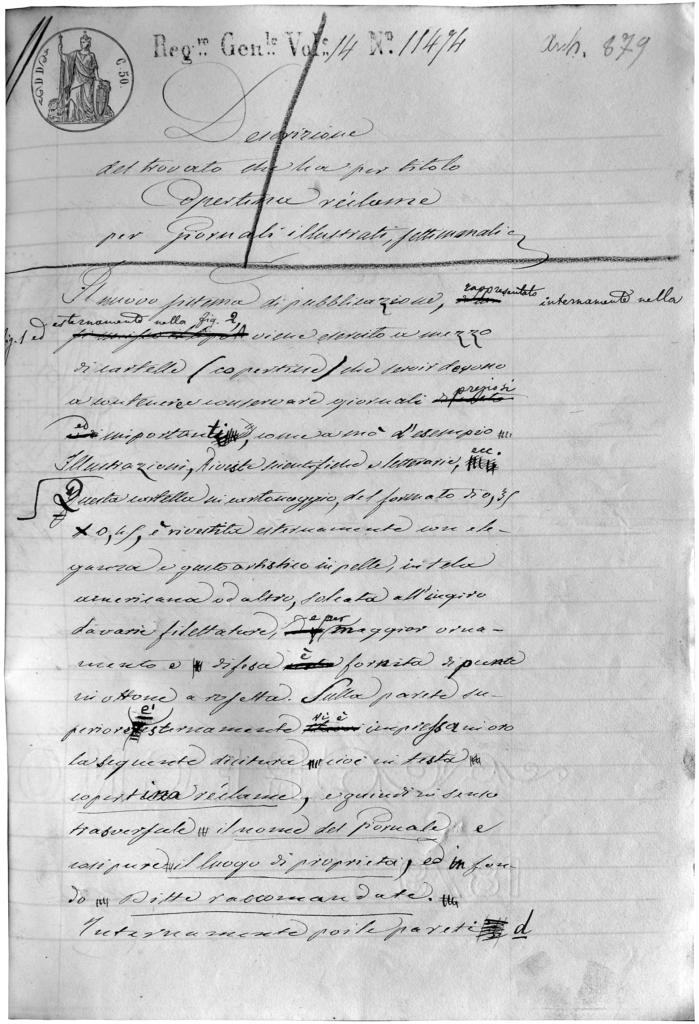 C. 50.
Reg.ro Gen.le Vol. 14 N.o 11474 Arch. 879
Descrizione
del trovato che ha per titolo
Copertina réclame
per Giornali illustrati, settimanali
Il nuovo sistema di pubblicazione, rappresentato internamente nella
fig. 1 ed esternamente nella fig. 2, viene esercito a mezzo
di cartelle (copertine) che servir devono
a contenere e conservare giornali preziosi
ed importanti, come a mò d'esempio
Illustrazioni, Riviste scientifiche e letterarie, ecc.
Questa cartella in cartonaggio, del formato di 0,35
x 0,45, è rivestita esternamente con ele-
ganza e gusto artistico in pelle, in tela
americana od altro, solcata all'ingiro
da varie filettature, e per maggior orna-
mento e difesa è fornita di punte
in ottone a rosetta. Sulla parete su-
periore esternamente vi è impressa in oro
la seguente dicitura cioè in testa
copertina réclame, e quindi in senso
trasversale il nome del Giornale e
così pure il luogo di proprietà, ed in fon-
do Ditte raccomandate.
Internamente poi le pareti d